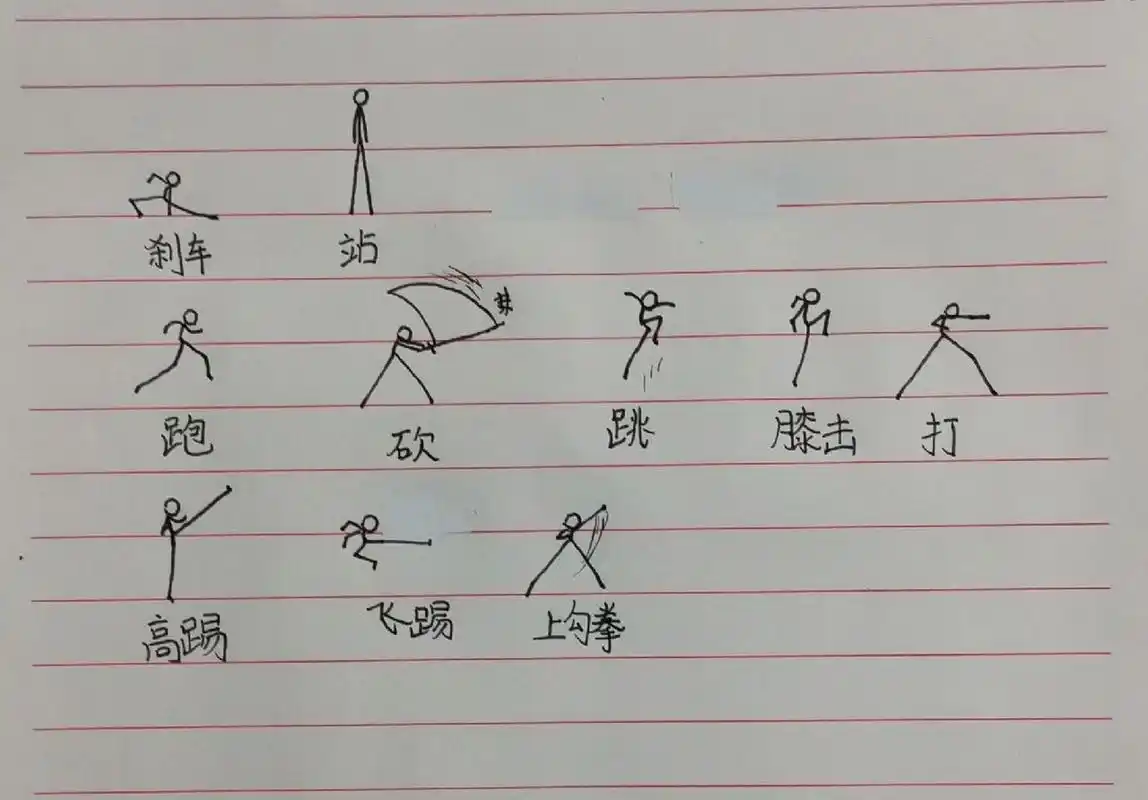 刹车 站
跑 砍 跳 膝击 打
高踢 飞踢 上勾拳